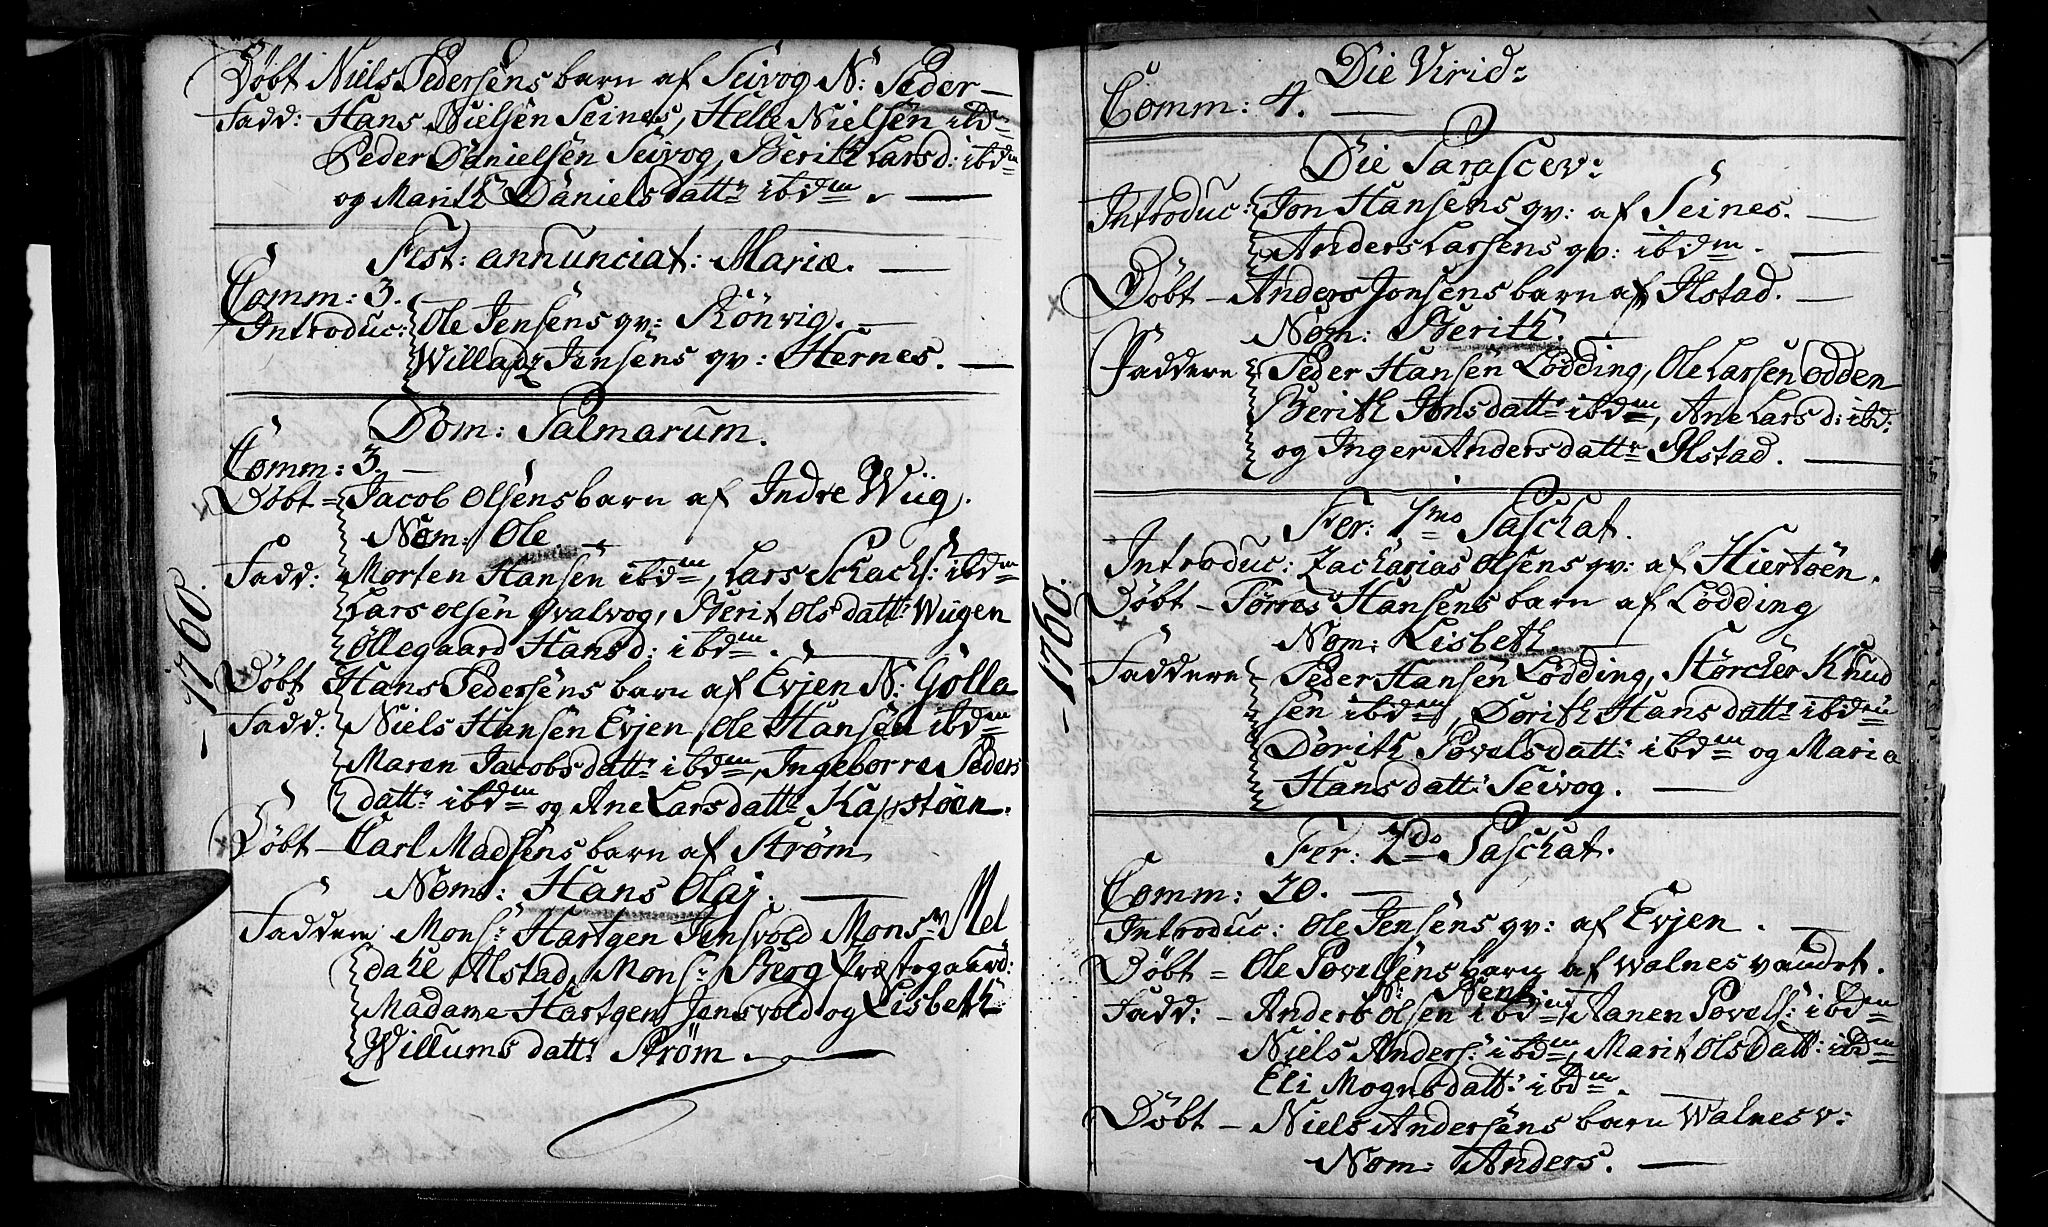 Döbt Niels Pedersens barn af Seivog N: Peder —
Fadd: Hans Nielsen Seines, Helle Nielsen ibdm
Peder Danielsen Seivog, Berith Larsd: ibdm
og Marith Daniels dattr ibdm. —
Fest: annunciat: Mariæ. —
Comm: 3.
Introduc: Ole Jensens qv: Rönvig. —
Willads Jensens qv: Hernes. —
Dom: Palmarum.
Comm: 3. —
Döbt = Jacob Olsens barn af Indre Wüg.
Nom: Ole —
Fadd: Morten Hansen ibdm, Lars Schachs: ibdm
Lars Olsen Qvalvog, Berit Olsdattr Wügen
Öllegaard Hansd: ibdm. —
Döbt Hans Pedersens barn af Evjen N: Gölla
Fadd: Niels Hansen Evjen, Ole Hansen ibdm
Maren Jacobsdattr ibdm, Ingeborre Peders
dattr ibdm og Ane Larsdattr Kapstöen.
Döbt — Carl Madsens barn af Ström
Nom: Hans Olaj. —
Faddere Monsr Hartgen Jensvold Monsr Mel
dahl Alstad, Monsr Berg Præstegaard:
Madame Hartgen Jensvold og Lisbeth
Willums dattr Ström —
-1760.
Die Virid:
Comm: 4. —
Die Parascev:
Introduc: Jon Hansens qv: af Seines. —
Anders Larsens qv: ibdm. —
Döbt — Anders Jonsens barn af Ilstad. —
Nom: Berith —
Faddere Peder Hansen Lödding, Ole Larsen Odden
Berith Jonsdattr ibdm, Ane Larsd: ibd:
og Inger Andersdattr Ilstad. —
Fer: 1mo Paschat.
Introduc: Zacharias Olsens qv: af Hiertöen.
Döbt — Törres Hansens barn af Lödding
Nom: Lisbeth —
Faddere — Peder Hansen Lödding, Störcker Knud
sen ibdm, Dorith Hansdattr ibdm
Dorith Povelsdatt: ibdm og Maria
Hansdatt: Seivog. —
Fer: 2do Paschat.
Comm: 20. —
Introduc: Ole Jensens qv: af Evjen. —
Döbt = Ole Povelsens barn af Walnesvandet.
N:
Fadd: — Anders Olsen ibdm, Aanen Povels: ibdm
Niels Anders: ibdm, Marit Olsdatt: ibdm
Eli Mognsdatt: ibdm.
Döbt — Niels Andersens barn Walnesv:
Nom: Anders. —
-1760.